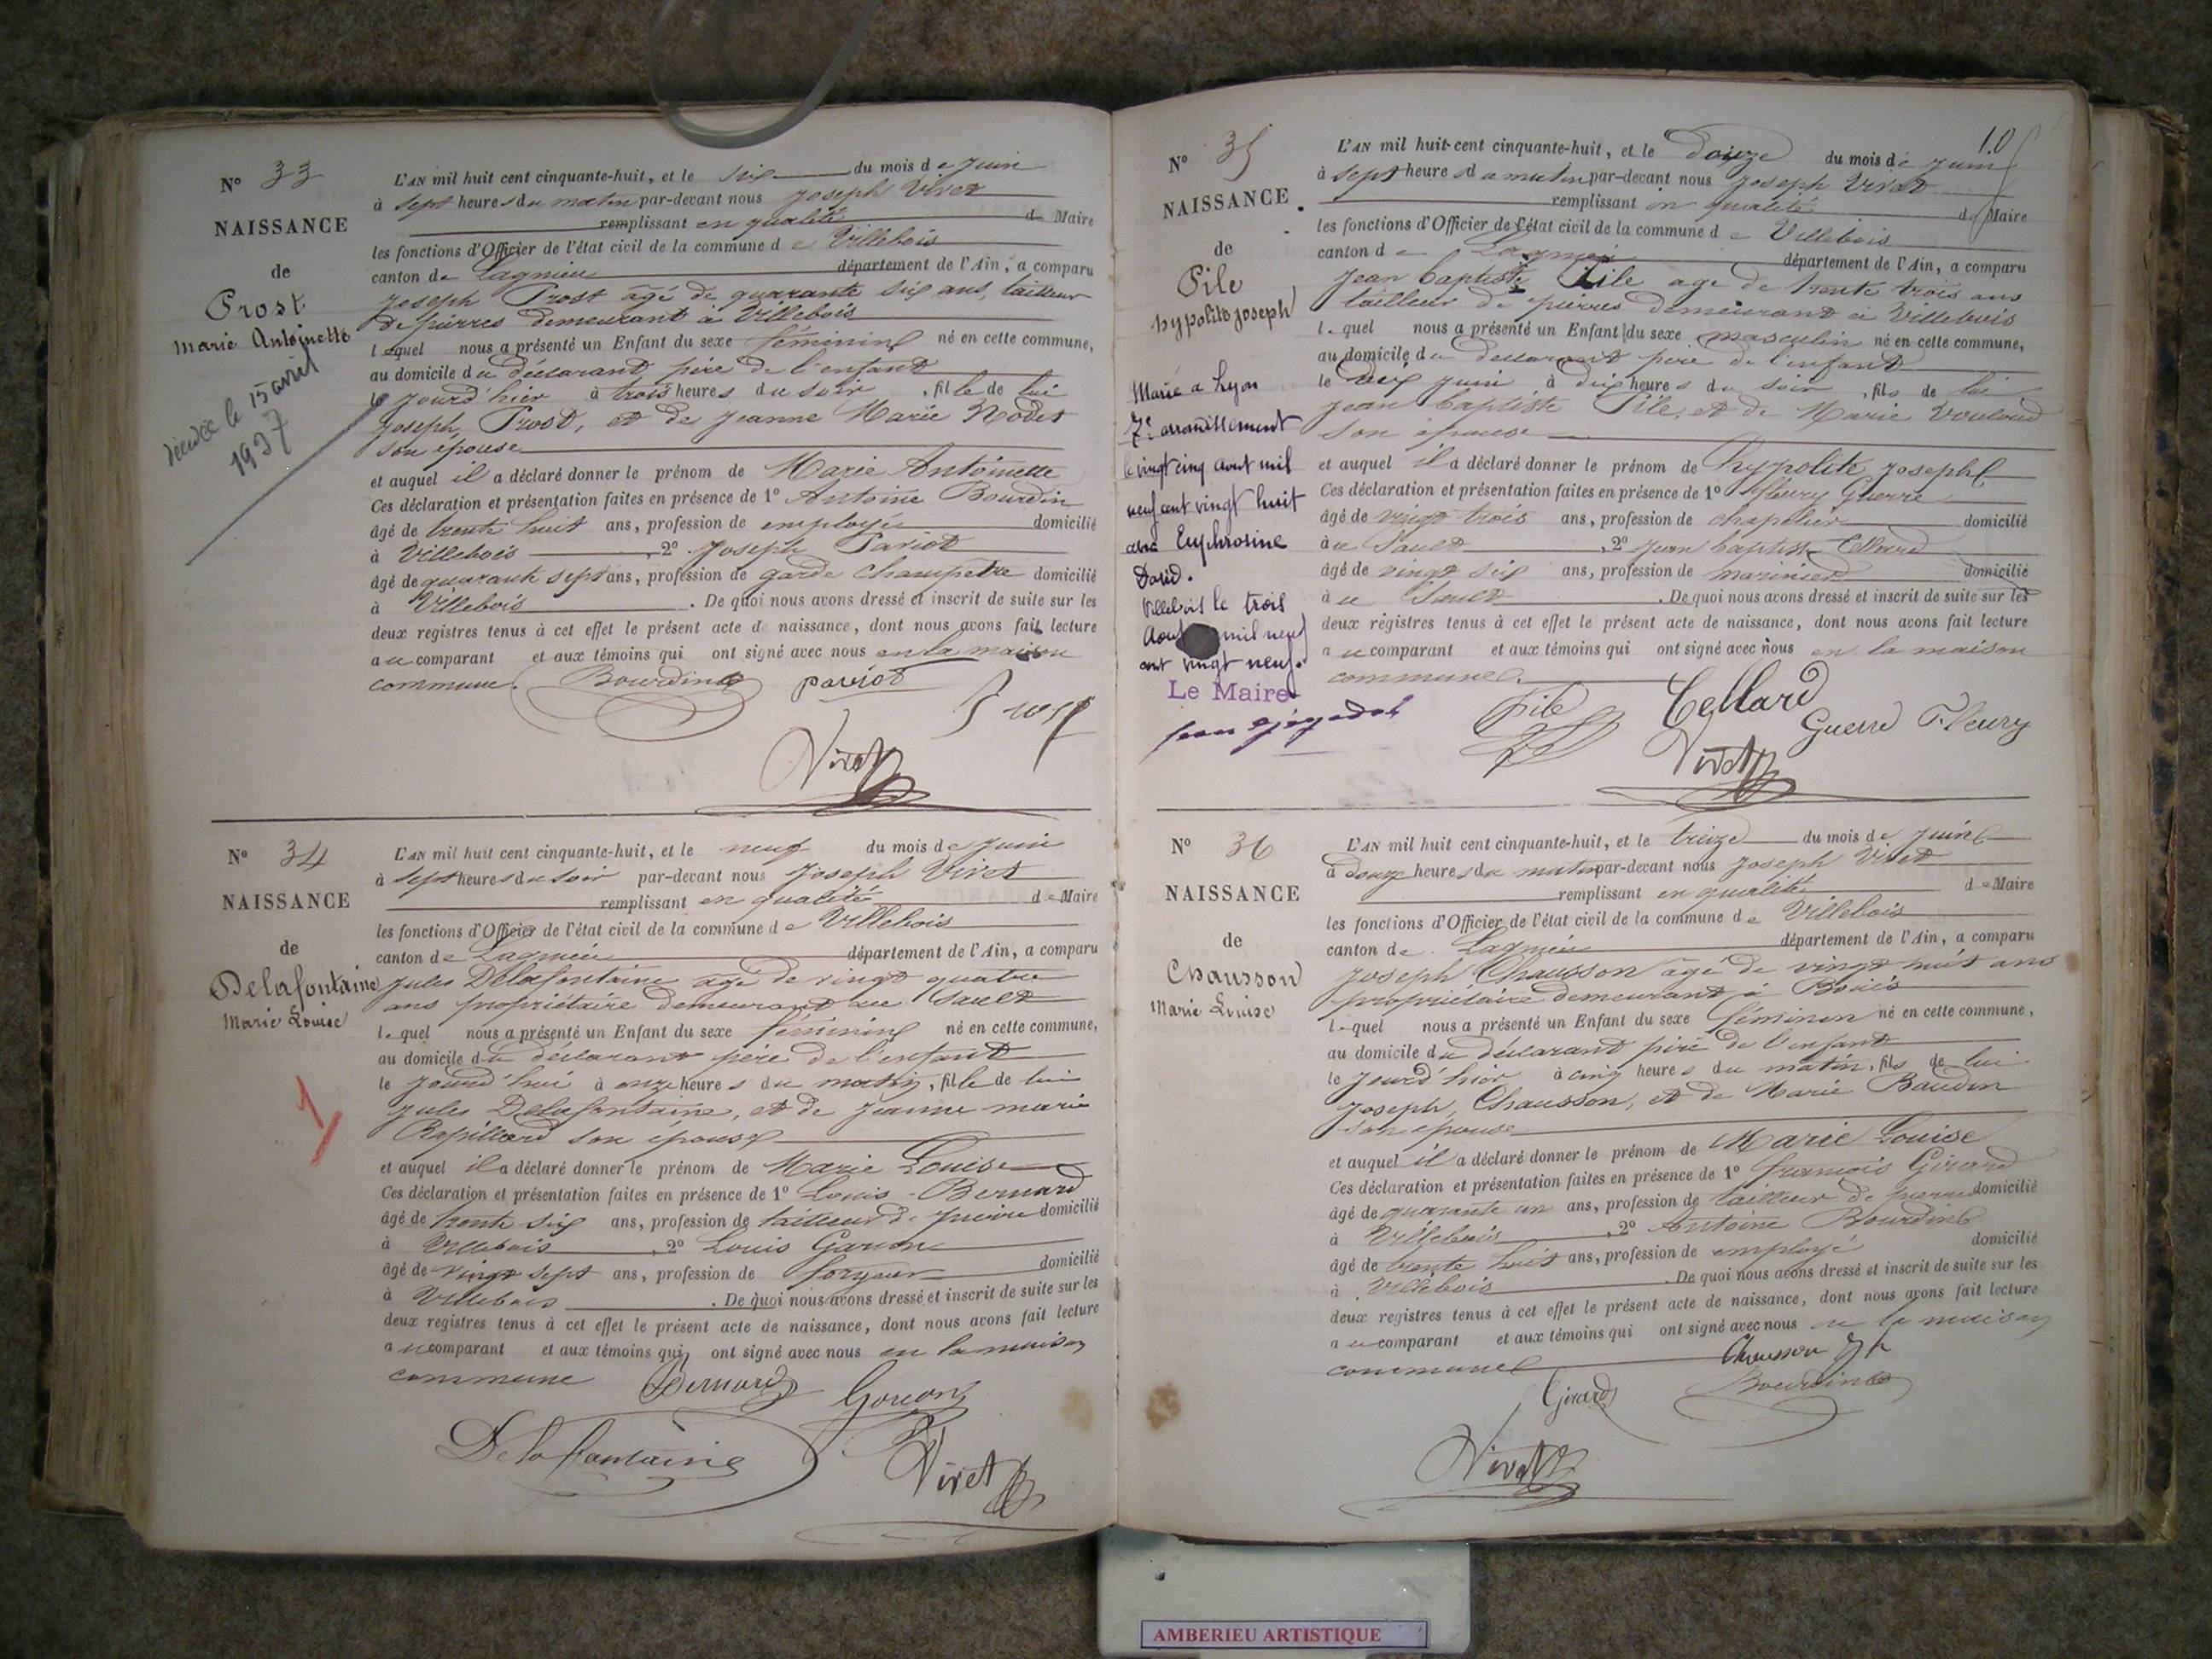 N° 33
NAISSANCE
de
Prost
Marie Antoinette
décédée le 15 avril
1937
L'AN mil huit cent cinquante-huit, et le six du mois de juin
à sept heures du matin par-devant nous Joseph Vivet
remplissant en qualité de Maire
les fonctions d'Officier de l'état civil de la commune de Villebois
canton de Lagnieu département de l'Ain, a comparu
Joseph Prost âgé de quarante six ans, tailleur
de pierres demeurant à Villebois
lequel nous a présenté un Enfant du sexe féminin né en cette commune,
au domicile du déclarant père de l'enfant
le jourd'hier à trois heures du soir, fille de lui
Joseph Prost, et de Jeanne Marie Nodet
son épouse
et auquel il a déclaré donner le prénom de Marie Antoinette
Ces déclaration et présentation faites en présence de 1° Antoine Bourdin
âgé de trente huit ans, profession de employé domicilié
à Villebois, 2° Joseph Pariot
âgé de quarante sept ans, profession de garde champetre domicilié
à Villebois. De quoi nous avons dressé et inscrit de suite sur les
deux registres tenus à cet effet le présent acte de naissance, dont nous avons fait lecture
au comparant et aux témoins qui ont signé avec nous en la maison
commune. Bourdin pariot
Prost
Vivet
N° 34
NAISSANCE
de
Delafontaine
Marie Louise
1
L'AN mil huit cent cinquante-huit, et le neuf du mois de juin
à sept heures du soir par-devant nous Joseph Vivet
remplissant en qualité de Maire
les fonctions d'Officier de l'état civil de la commune de Villebois
canton de Lagnieu département de l'Ain, a comparu
Jules Delafontaine age de vingt quatre
ans propriétaire demeurant au Sault
lequel nous a présenté un Enfant du sexe féminin né en cette commune,
au domicile du déclarant père de l'enfant
le jourd'hui à onze heures du matin, fille de lui
Jules Delafontaine, et de Jeanne marie
Rapillard son épouse
et auquel il a déclaré donner le prénom de Marie Louise
Ces déclaration et présentation faites en présence de 1° Louis Bernard
âgé de trente six ans, profession de tailleur de pierre domicilié
à Villebois, 2° Louis
âgé de vingt sept ans, profession de forgeur domicilié
à Villebois. De quoi nous avons dressé et inscrit de suite sur les
deux registres tenus à cet effet le présent acte de naissance, dont nous avons fait lecture
au comparant et aux témoins qui ont signé avec nous en la maison
commune Bernard
Delafontaine Vivet
10
N° 35
NAISSANCE
de
Pile
hypolite joseph
Marié a Lyon
7e arrondissement
le vingt cinq aout mil
neuf cent vingt huit
avec Euphrosine
David.
Villebois le trois
Aout mil neuf
cent vingt neuf.
Le Maire
L'AN mil huit-cent cinquante-huit, et le douze du mois de juin
à sept heures du matin par-devant nous Joseph Vivet
remplissant en qualité de Maire
les fonctions d'Officier de l'état civil de la commune de Villebois
canton de Lagnieu département de l'Ain, a comparu
Jean baptiste Pile age de trente trois ans
tailleur de pierres demeurant à Villebois
lequel nous a présenté un Enfant du sexe masculin né en cette commune,
au domicile du déclarant père de l'enfant
le dix juin à dix heures du soir, fils de lui
Jean baptiste Pile, et de Marie Vouloud
son épouse
et auquel il a déclaré donner le prénom de hyppolite joseph
Ces déclaration et présentation faites en présence de 1° fleury Guerre
âgé de vingt trois ans, profession de chapelier domicilié
à u Sault, 2° Jean baptiste Cellard
âgé de vingt six ans, profession de marinier domicilié
à u Sault. De quoi nous avons dressé et inscrit de suite sur les
deux registres tenus à cet effet le présent acte de naissance, dont nous avons fait lecture
au comparant et aux témoins qui ont signé avec nous en la maison
commune.
Pile Cellard
Guerre Fleury
Vivet
N° 36
NAISSANCE
de
Chausson
Marie Louise
L'AN mil huit cent cinquante-huit, et le treize du mois de juin
à douze heures du matin par-devant nous Joseph Vivet
remplissant en qualité de Maire
les fonctions d'Officier de l'état civil de la commune de Villebois
canton de Lagnieu département de l'Ain, a comparu
Joseph Chausson âgé de vingt huit ans
propriétaire demeurant à Bouis
lequel nous a présenté un Enfant du sexe féminin né en cette commune,
au domicile du déclarant père de l'enfant
le jourd'hier à cinq heures du matin, fils de lui
Joseph Chausson, et de Marie Baudin
son épouse
et auquel il a déclaré donner le prénom de Marie Louise
Ces déclaration et présentation faites en présence de 1° françois Girard
âgé de quarante un ans, profession de tailleur de pierre domicilié
à Villebois, 2° Antoine Bourdin
âgé de trente huit ans, profession de employé domicilié
à Villebois. De quoi nous avons dressé et inscrit de suite sur les
deux registres tenus à cet effet le présent acte de naissance, dont nous avons fait lecture
au comparant et aux témoins qui ont signé avec nous en la maison
commune Chausson Jh
Girard Bourdin
Vivet
AMBERIEU ARTISTIQUE